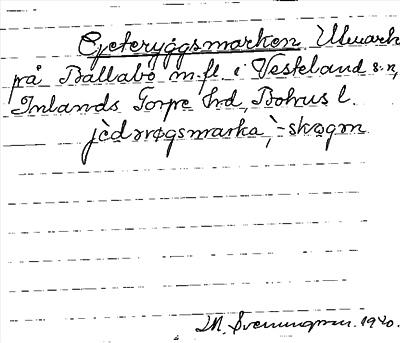 Geteryggsmarken Utmark
på Ballabo m.fl. i Västerland s:n,
Inlands Torpe hd, Bohus l.
jèdrøgsmarka, -skogm
M. Svenungsson. 1940.